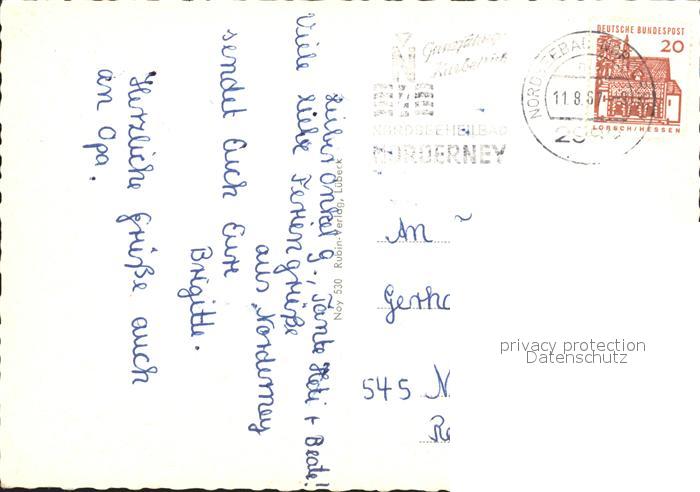 Lieber Onkel G., Tante Heti + Beate!
Viele liebe Feriengrüße
aus Norderney
sendet Euch Eure
Brigitte.
Herzliche Grüße auch
an Opa.
Noy 530 Rubin-Verlag, Lübeck
Ganzjährig
Kurbetrieb
NORDSEEHEILBAD
NORDERNEY
NORDSEEBAD
11.8.6
DEUTSCHE BUNDESPOST
20
LORSCH/HESSEN
An
Gerh
545 N
R
privacy protection
Datenschutz